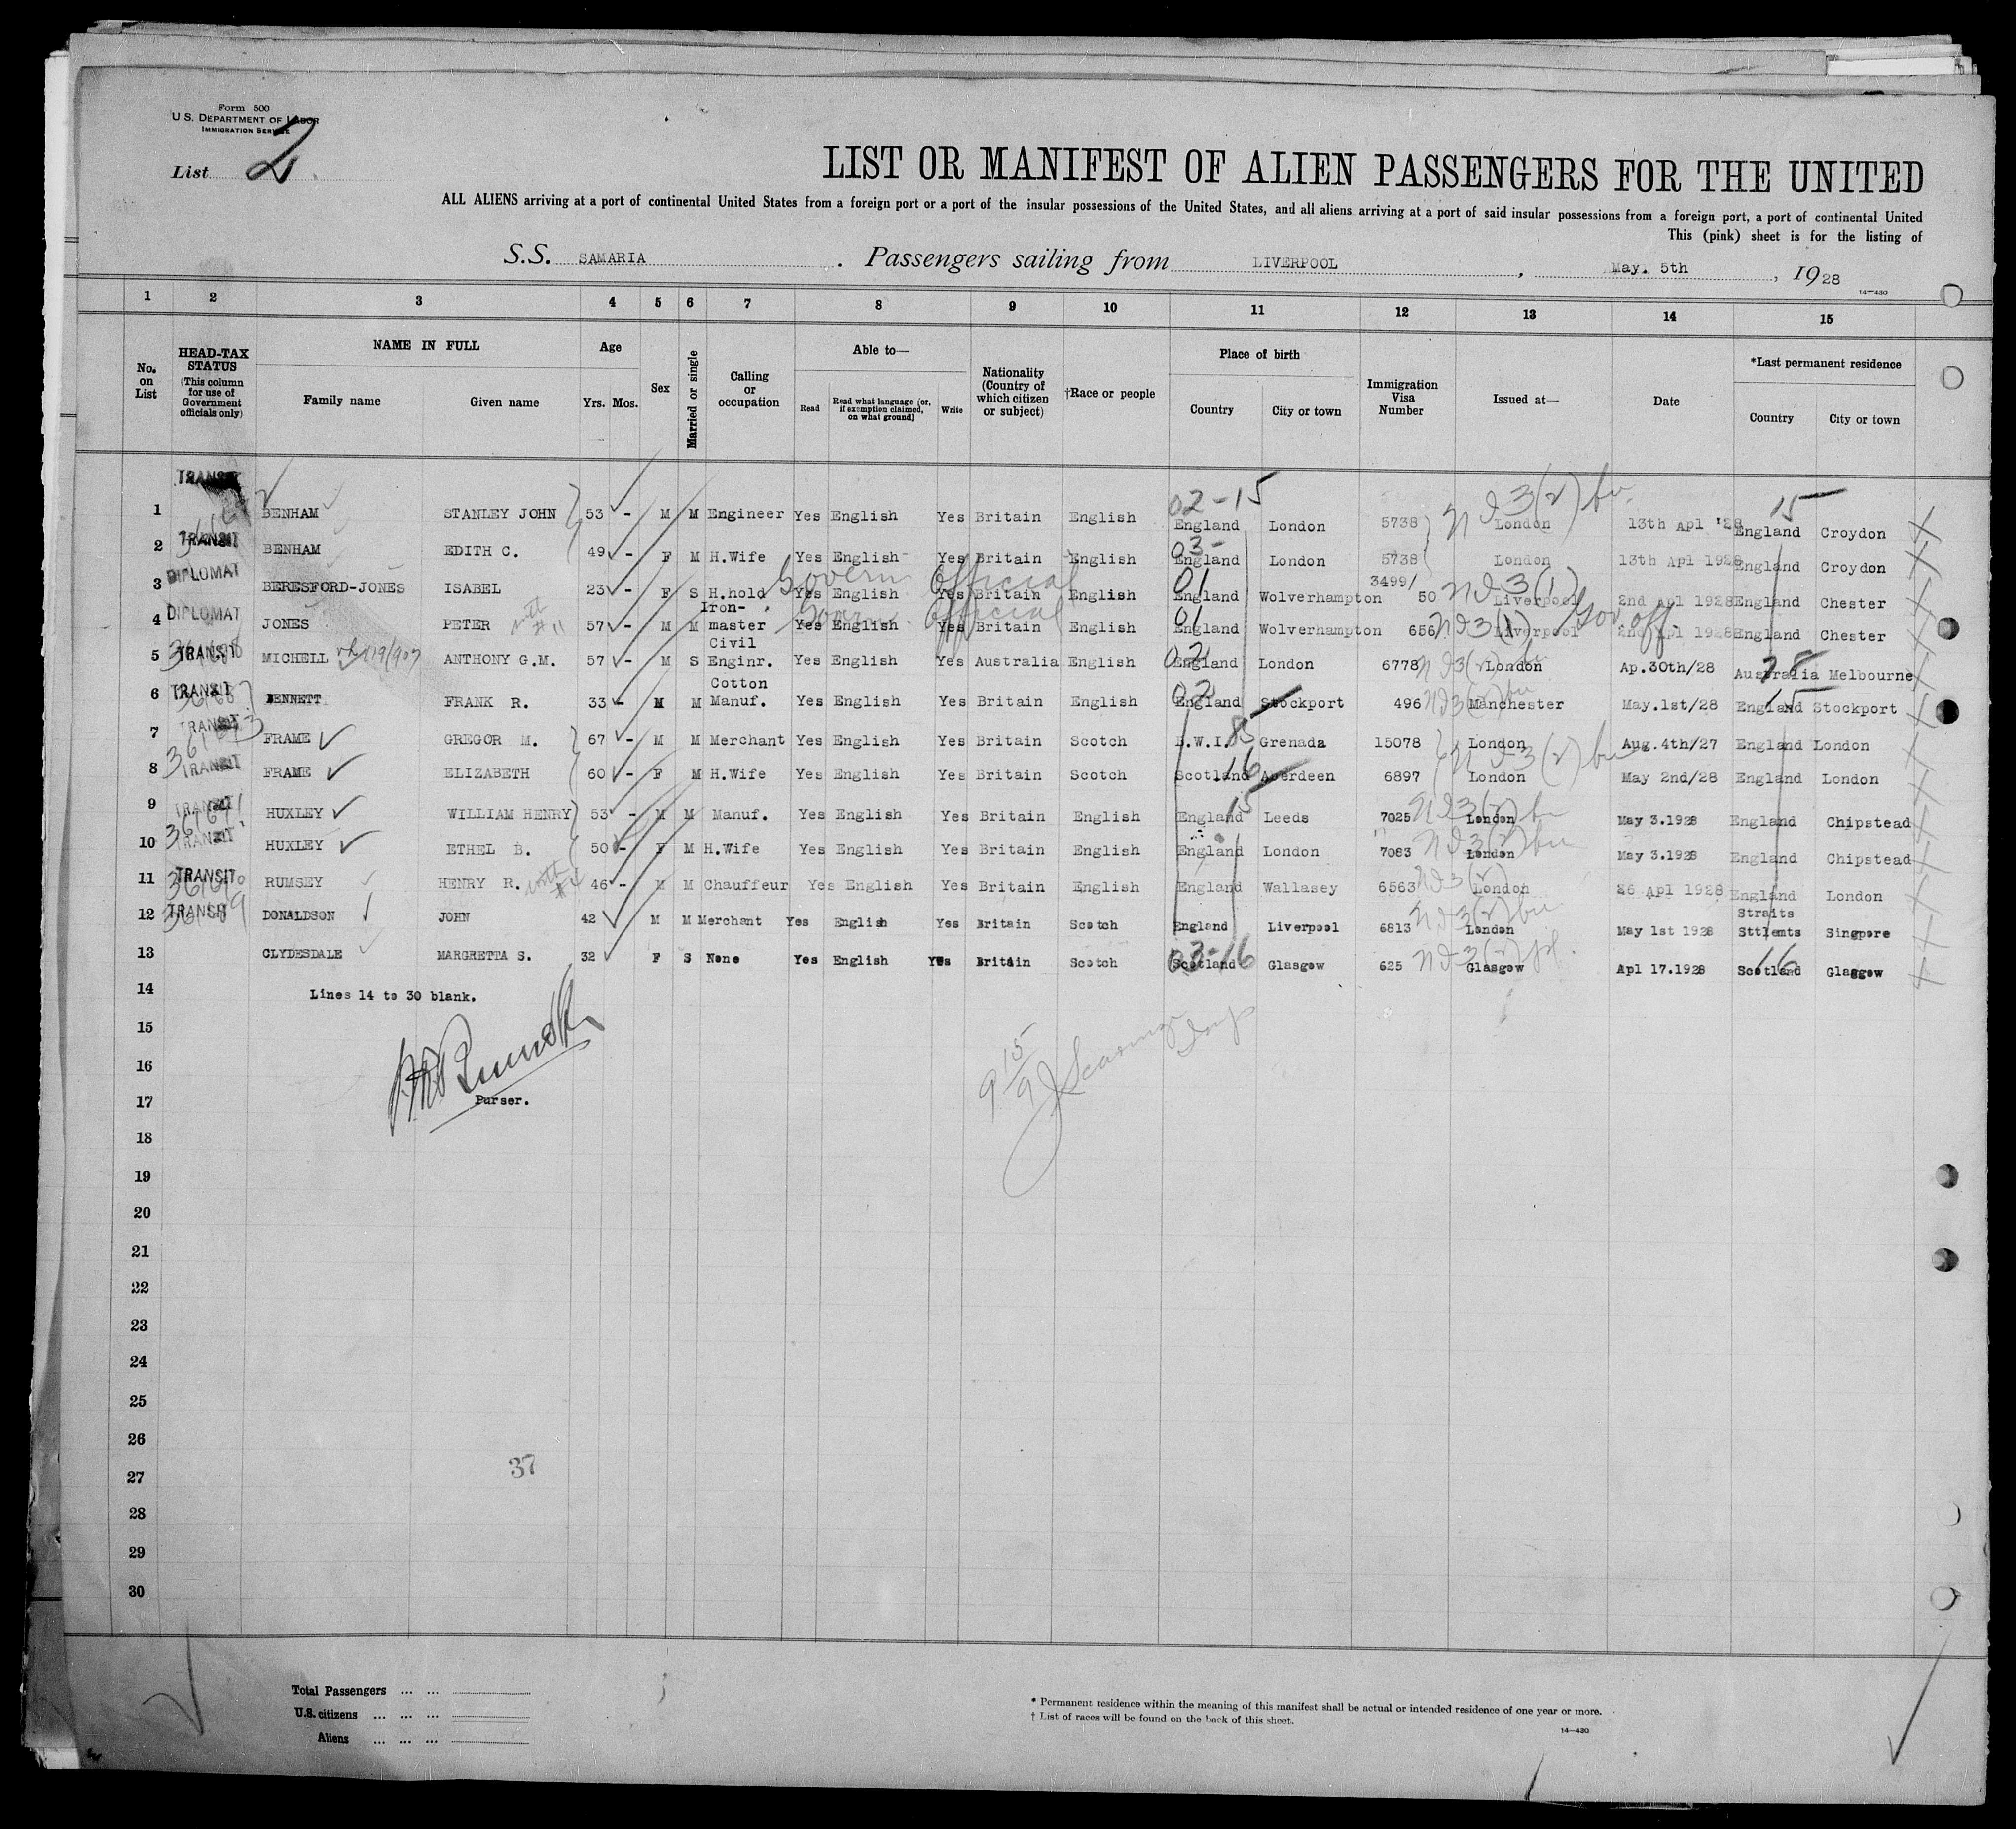 Form 500
U.S. DEPARTMENT OF LABOR
IMMIGRATION SERVICE
List 2
LIST OR MANIFEST OF ALIEN PASSENGERS FOR THE UNITED
ALL ALIENS arriving at a port of continental United States from a foreign port or a port of the insular possessions of the United States, and all aliens arriving at a port of said insular possessions from a foreign port, a port of continental United
This (pink) sheet is for the listing of
S.S. SAMARIA. Passengers sailing from LIVERPOOL, May. 5th, 1928
14-430
1 2 3 4 5 6 7 8 9 10 11 12 13 14 15
No. on List
HEAD-TAX STATUS (This column for use of Government officials only)
NAME IN FULL
Family name Given name
Age
Yrs. Mos.
Sex
Married or single
Calling or occupation
Able to—
Read Read what language (or, if exemption claimed, on what ground) Write
Nationality (Country of which citizen or subject)
†Race or people
Place of birth
Country City or town
Immigration Visa Number
Issued at—
Date
*Last permanent residence
Country City or town
02-15 15
1 TRANSIT BENHAM STANLEY JOHN 53 - M M Engineer Yes English Yes Britain English England London 5738 London 13th Apl '28 England Croydon
03-
2 TRANSIT BENHAM EDITH C. 49 - F M H.Wife Yes English Yes Britain English England London 5738 London 13th Apl 1928 England Croydon
Govern Official 01
3 DIPLOMAT BERESFORD-JONES ISABEL 23 - F S H.hold Yes English Yes Britain English England Wolverhampton 3499/50 Liverpool 2nd Apl 1928 England Chester
Govern. Official 01 Gov. off.
4 DIPLOMAT JONES PETER with #11 57 - M M Iron-master Yes English Yes Britain English England Wolverhampton 656 Liverpool 2nd Apl 1928 England Chester
02
5 TRANSIT MICHELL ANTHONY G.M. 57 - M S Civil Enginr. Yes English Yes Australia English England London 6778 London Ap.30th/28 Australia Melbourne
02 15
6 TRANSIT BENNETT FRANK R. 33 - M M Cotton Manuf. Yes English Yes Britain English England Stockport 496 Manchester May.1st/28 England Stockport
7 TRANSIT FRAME GREGOR M. 67 - M M Merchant Yes English Yes Britain Scotch B.W.I. Grenada 15078 London Aug.4th/27 England London
16
8 TRANSIT FRAME ELIZABETH 60 - F M H.Wife Yes English Yes Britain Scotch Scotland Aberdeen 6897 London May 2nd/28 England London
15
9 TRANSIT HUXLEY WILLIAM HENRY 53 - M M Manuf. Yes English Yes Britain English England Leeds 7025 London May 3.1928 England Chipstead
10 TRANSIT HUXLEY ETHEL B. 50 - F M H.Wife Yes English Yes Britain English England London 7083 London May 3.1928 England Chipstead
11 TRANSIT RUMSEY HENRY R. with #4 46 - M M Chauffeur Yes English Yes Britain English England Wallasey 6563 London 26 Apl 1928 England London
12 TRANSIT DONALDSON JOHN 42 M M Merchant Yes English Yes Britain Scotch England Liverpool 6813 London May 1st 1928 Straits Sttlemts Singpore
03-16 16
13 CLYDESDALE MARGRETTA S. 32 F S None Yes English Yes Britain Scotch Scotland Glasgow 625 Glasgow Apl 17.1928 Scotland Glasgow
14 Lines 14 to 30 blank.
15
16
17 Purser.
18
19
20
21
22
23
24
25
26
27
37
28
29
30
Total Passengers ... ...
U.S. citizens ... ... ...
Aliens ... ... ...
* Permanent residence within the meaning of this manifest shall be actual or intended residence of one year or more.
† List of races will be found on the back of this sheet.
14-430